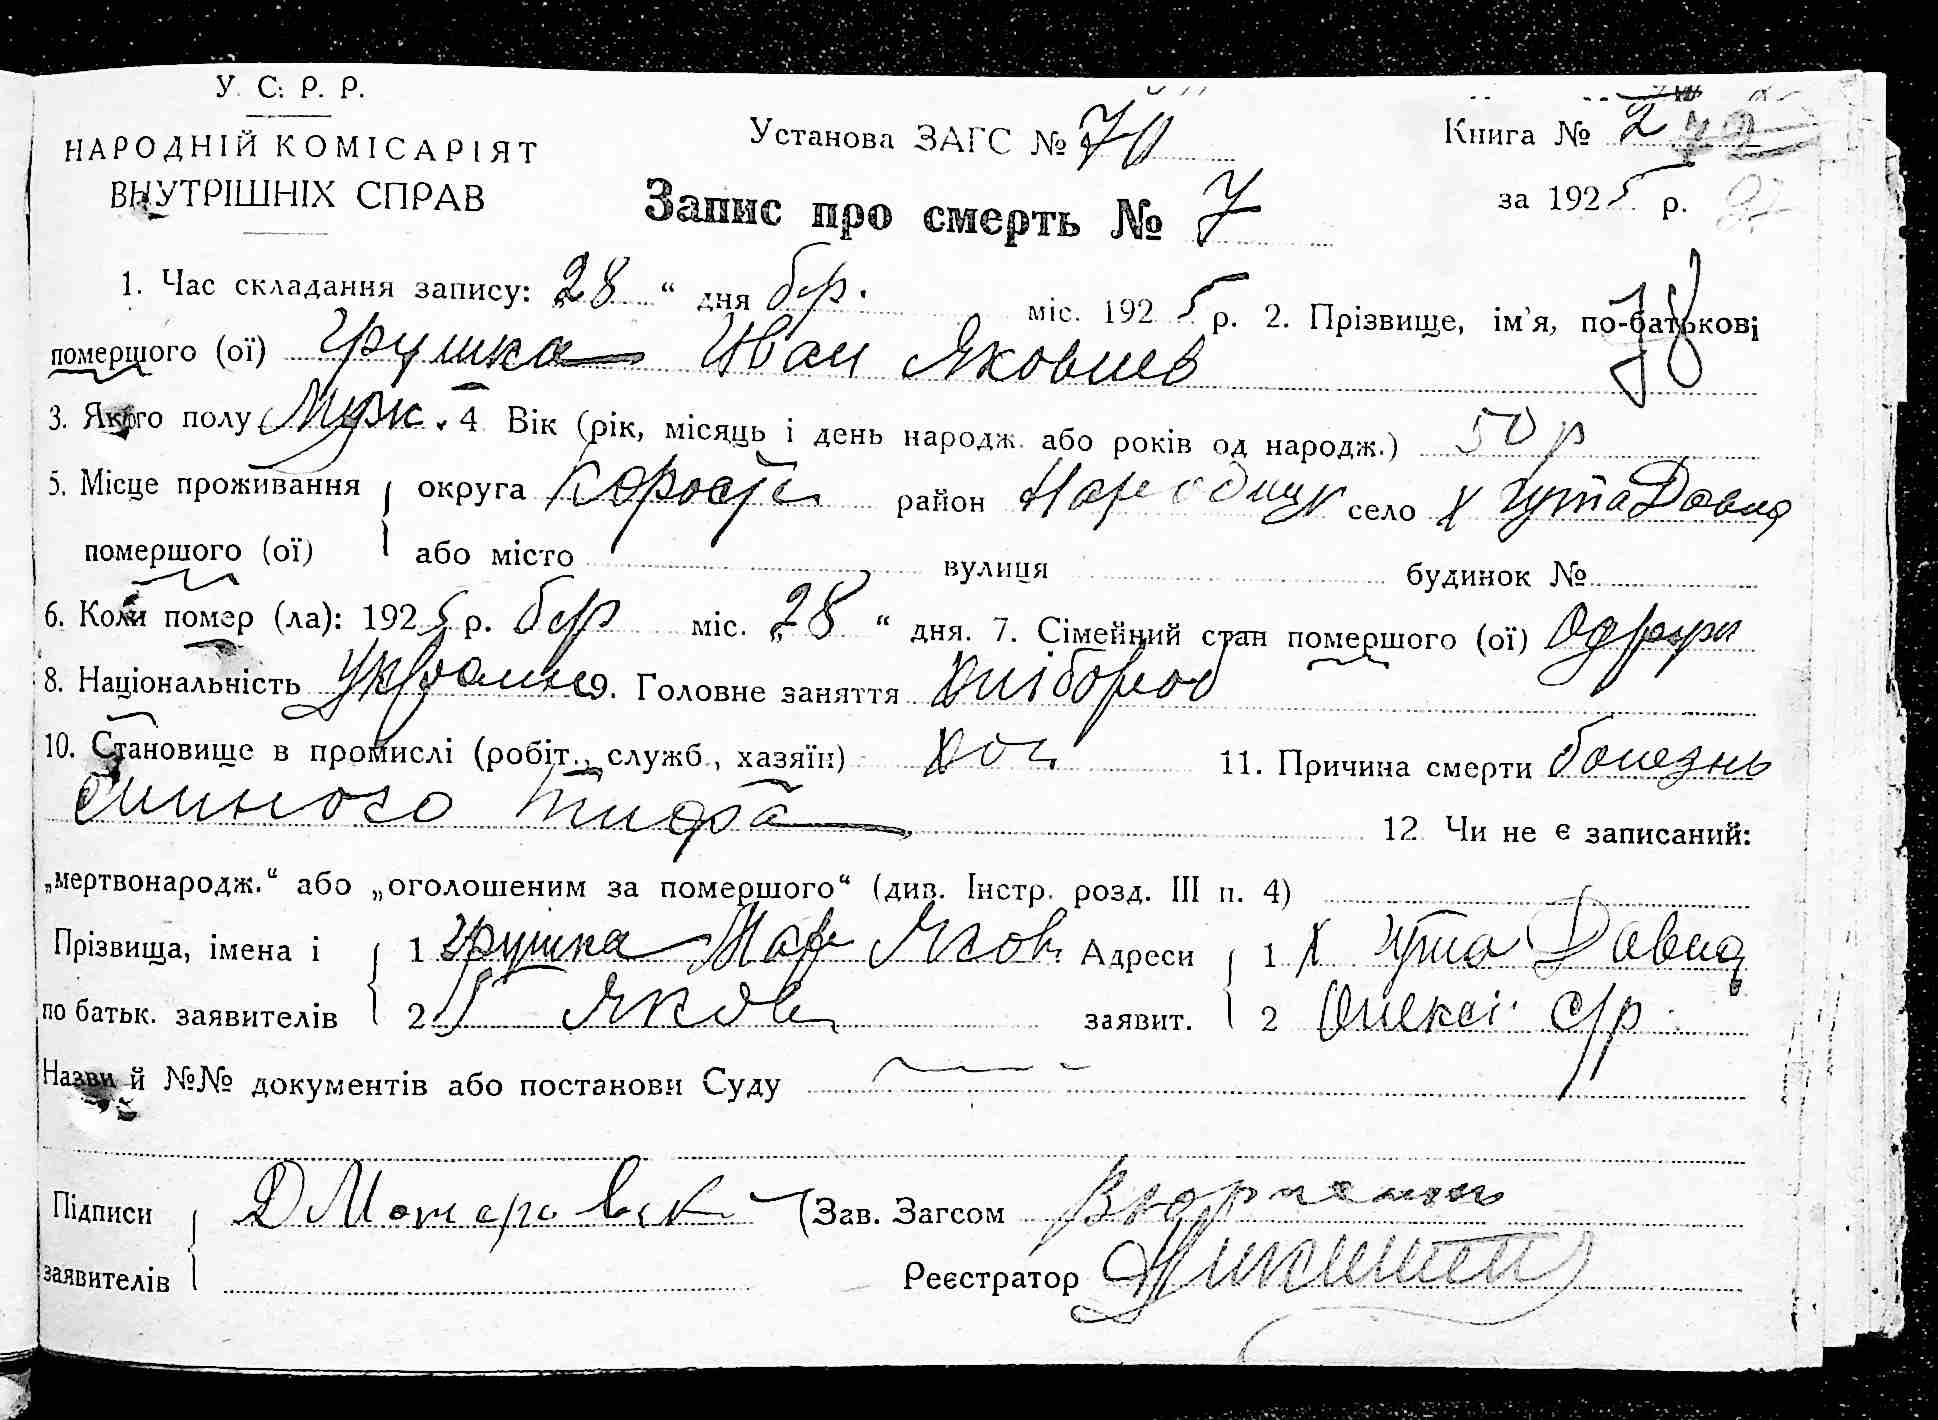 У. С. Р. Р.
НАРОДНІЙ КОМІСАРІЯТ
ВНУТРІШНІХ СПРАВ
Установа ЗАГС № 70
Книга № 2
за 1925 р.
Запис про смерть № 7
1. Час складання запису: „28“ дня бер. міс. 1925 р. 2. Прізвище, ім’я, по-батькові
помершого (ої) Грушка Иван Яковлев
3. Якого полу Муж. 4 Вік (рік, місяць і день народж. або років од народж.) 50 р
5. Місце проживання округа Корост район Народицк село х Гута Давид
помершого (ої) або місто вулиця будинок №
6. Коли помер (ла): 1925 р. бер міс. „28“ дня. 7. Сімейний стан помершого (ої) Одруж
8. Національність Украине 9. Головне заняття Хлібороб
10. Становище в промислі (робіт., служб., хазяїн) Хоз 11. Причина смерти болезнь
тифа 12 Чи не є записаний:
„мертвонародж.“ або „оголошеним за помершого“ (див. Інстр. розд. III п. 4)
Прізвища, імена і 1 Грушка Яков Адреси 1 х Гута Давид
по батьк. заявителів 2 Яков заявит. 2 Олексі с/р
Назви й №№ документів або постанови Суду
Підписи Зав. Загсом
заявителів Реєстратор